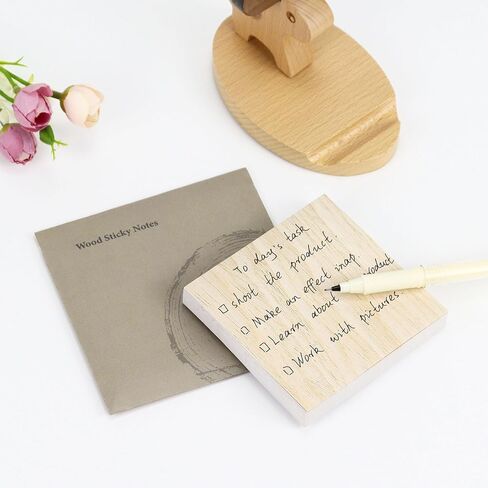 Wood Sticky Notes
To day's task
□ shoot the product!
□ Make an effect snap
□ Learn about product
□ Work with pictures.